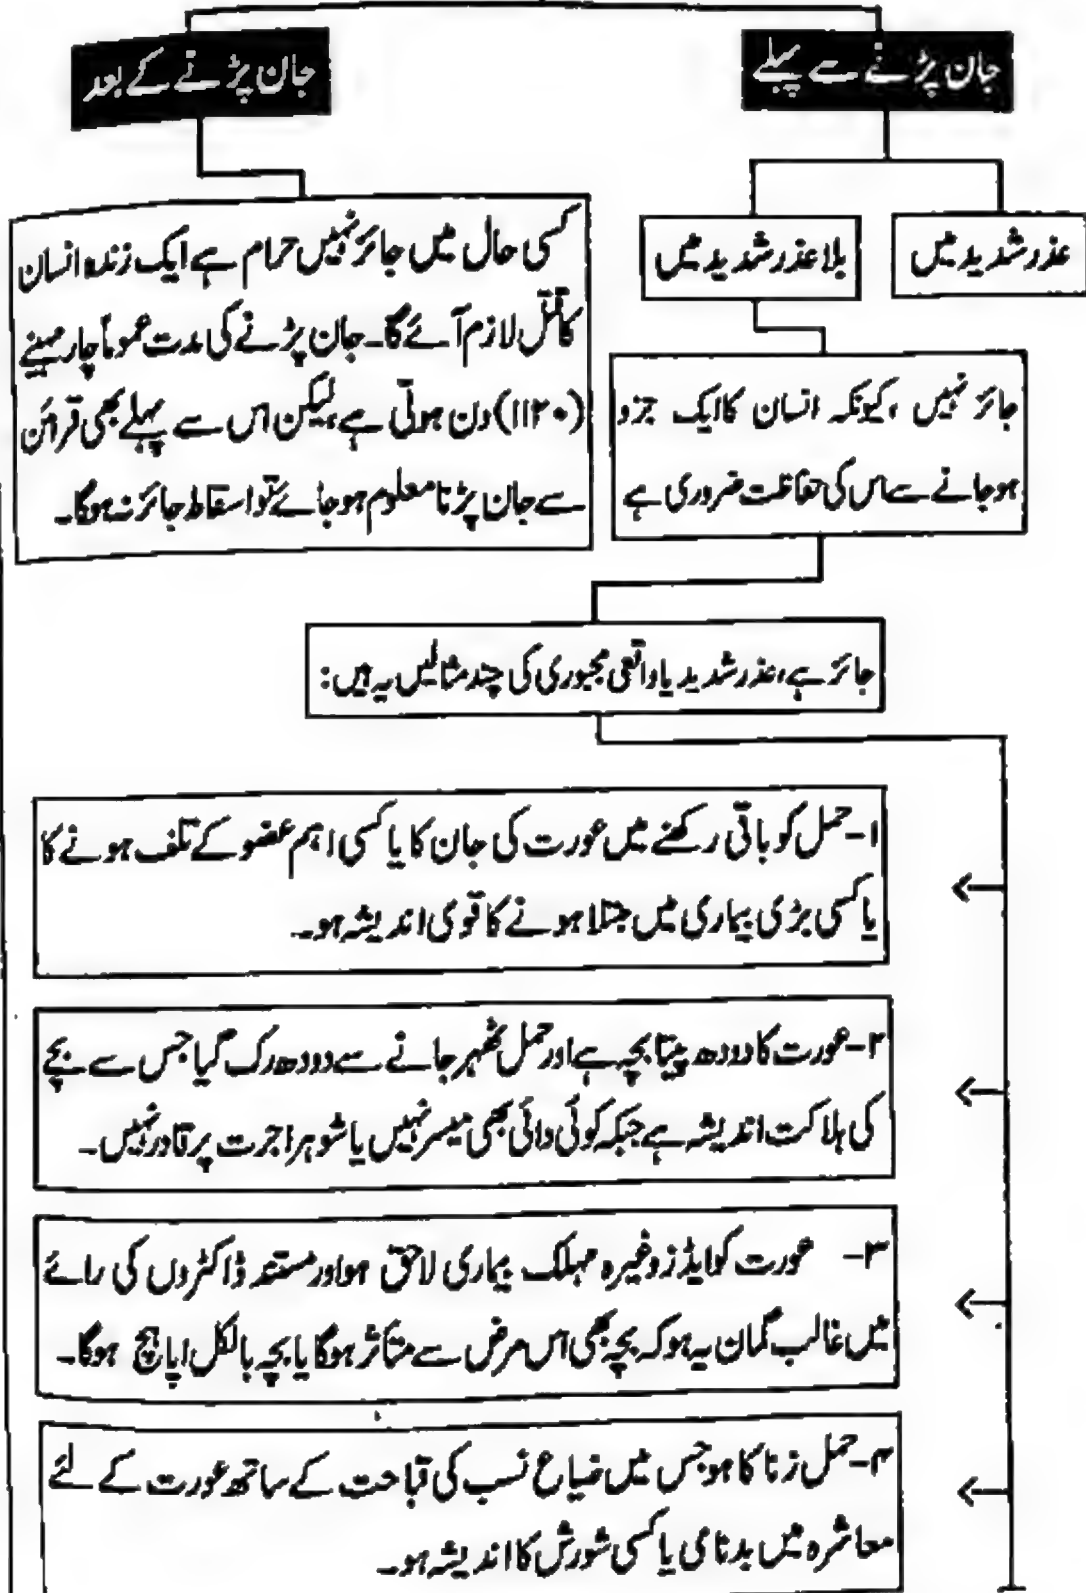 جان پڑنے سے پہلے
جان پڑنے کے بعد
عذر شدید میں
بلا عذر شدید میں
کسی حال میں جائز نہیں حرام ہے ایک زندہ انسان
کا قتل لازم آئے گا۔ جان پڑنے کی مدت عموماً چار مہینے
(۱۱۲۰) دن ہوتی ہے، لیکن اس سے پہلے بھی قرائن
سے جان پڑنا معلوم ہو جائے تو اسقاط جائز نہ ہوگا۔
جائز نہیں، کیونکہ انسان کا ایک جزو
ہو جانے سے اس کی حفاظت ضروری ہے
جائز ہے، عذر شدید یا واقعی مجبوری کی چند مثالیں یہ ہیں:
۱- حمل کو باقی رکھنے میں عورت کی جان کا یا کسی اہم عضو کے تلف ہونے کا
یا کسی بڑی بیماری میں مبتلا ہونے کا قوی اندیشہ ہو۔
۲- عورت کا دودھ پیتا بچہ ہے اور حمل ٹھہر جانے سے دودھ رک گیا جس سے بچے
کی ہلاکت اندیشہ ہے جبکہ کوئی دائی بھی میسر نہیں یا شوہر اجرت پر قادر نہیں۔
۳- عورت کو ایڈز وغیرہ مہلک بیماری لاحق ہو اور مستند ڈاکٹروں کی رائے
میں غالب گمان یہ ہو کہ بچہ بھی اس مرض سے متاثر ہوگا یا بچہ بالکل اپاہج ہوگا۔
۴- حمل زنا کا ہو جس میں ضیاع نسب کی قباحت کے ساتھ عورت کے لئے
معاشرہ میں بدنامی یا کسی شورش کا اندیشہ ہو۔